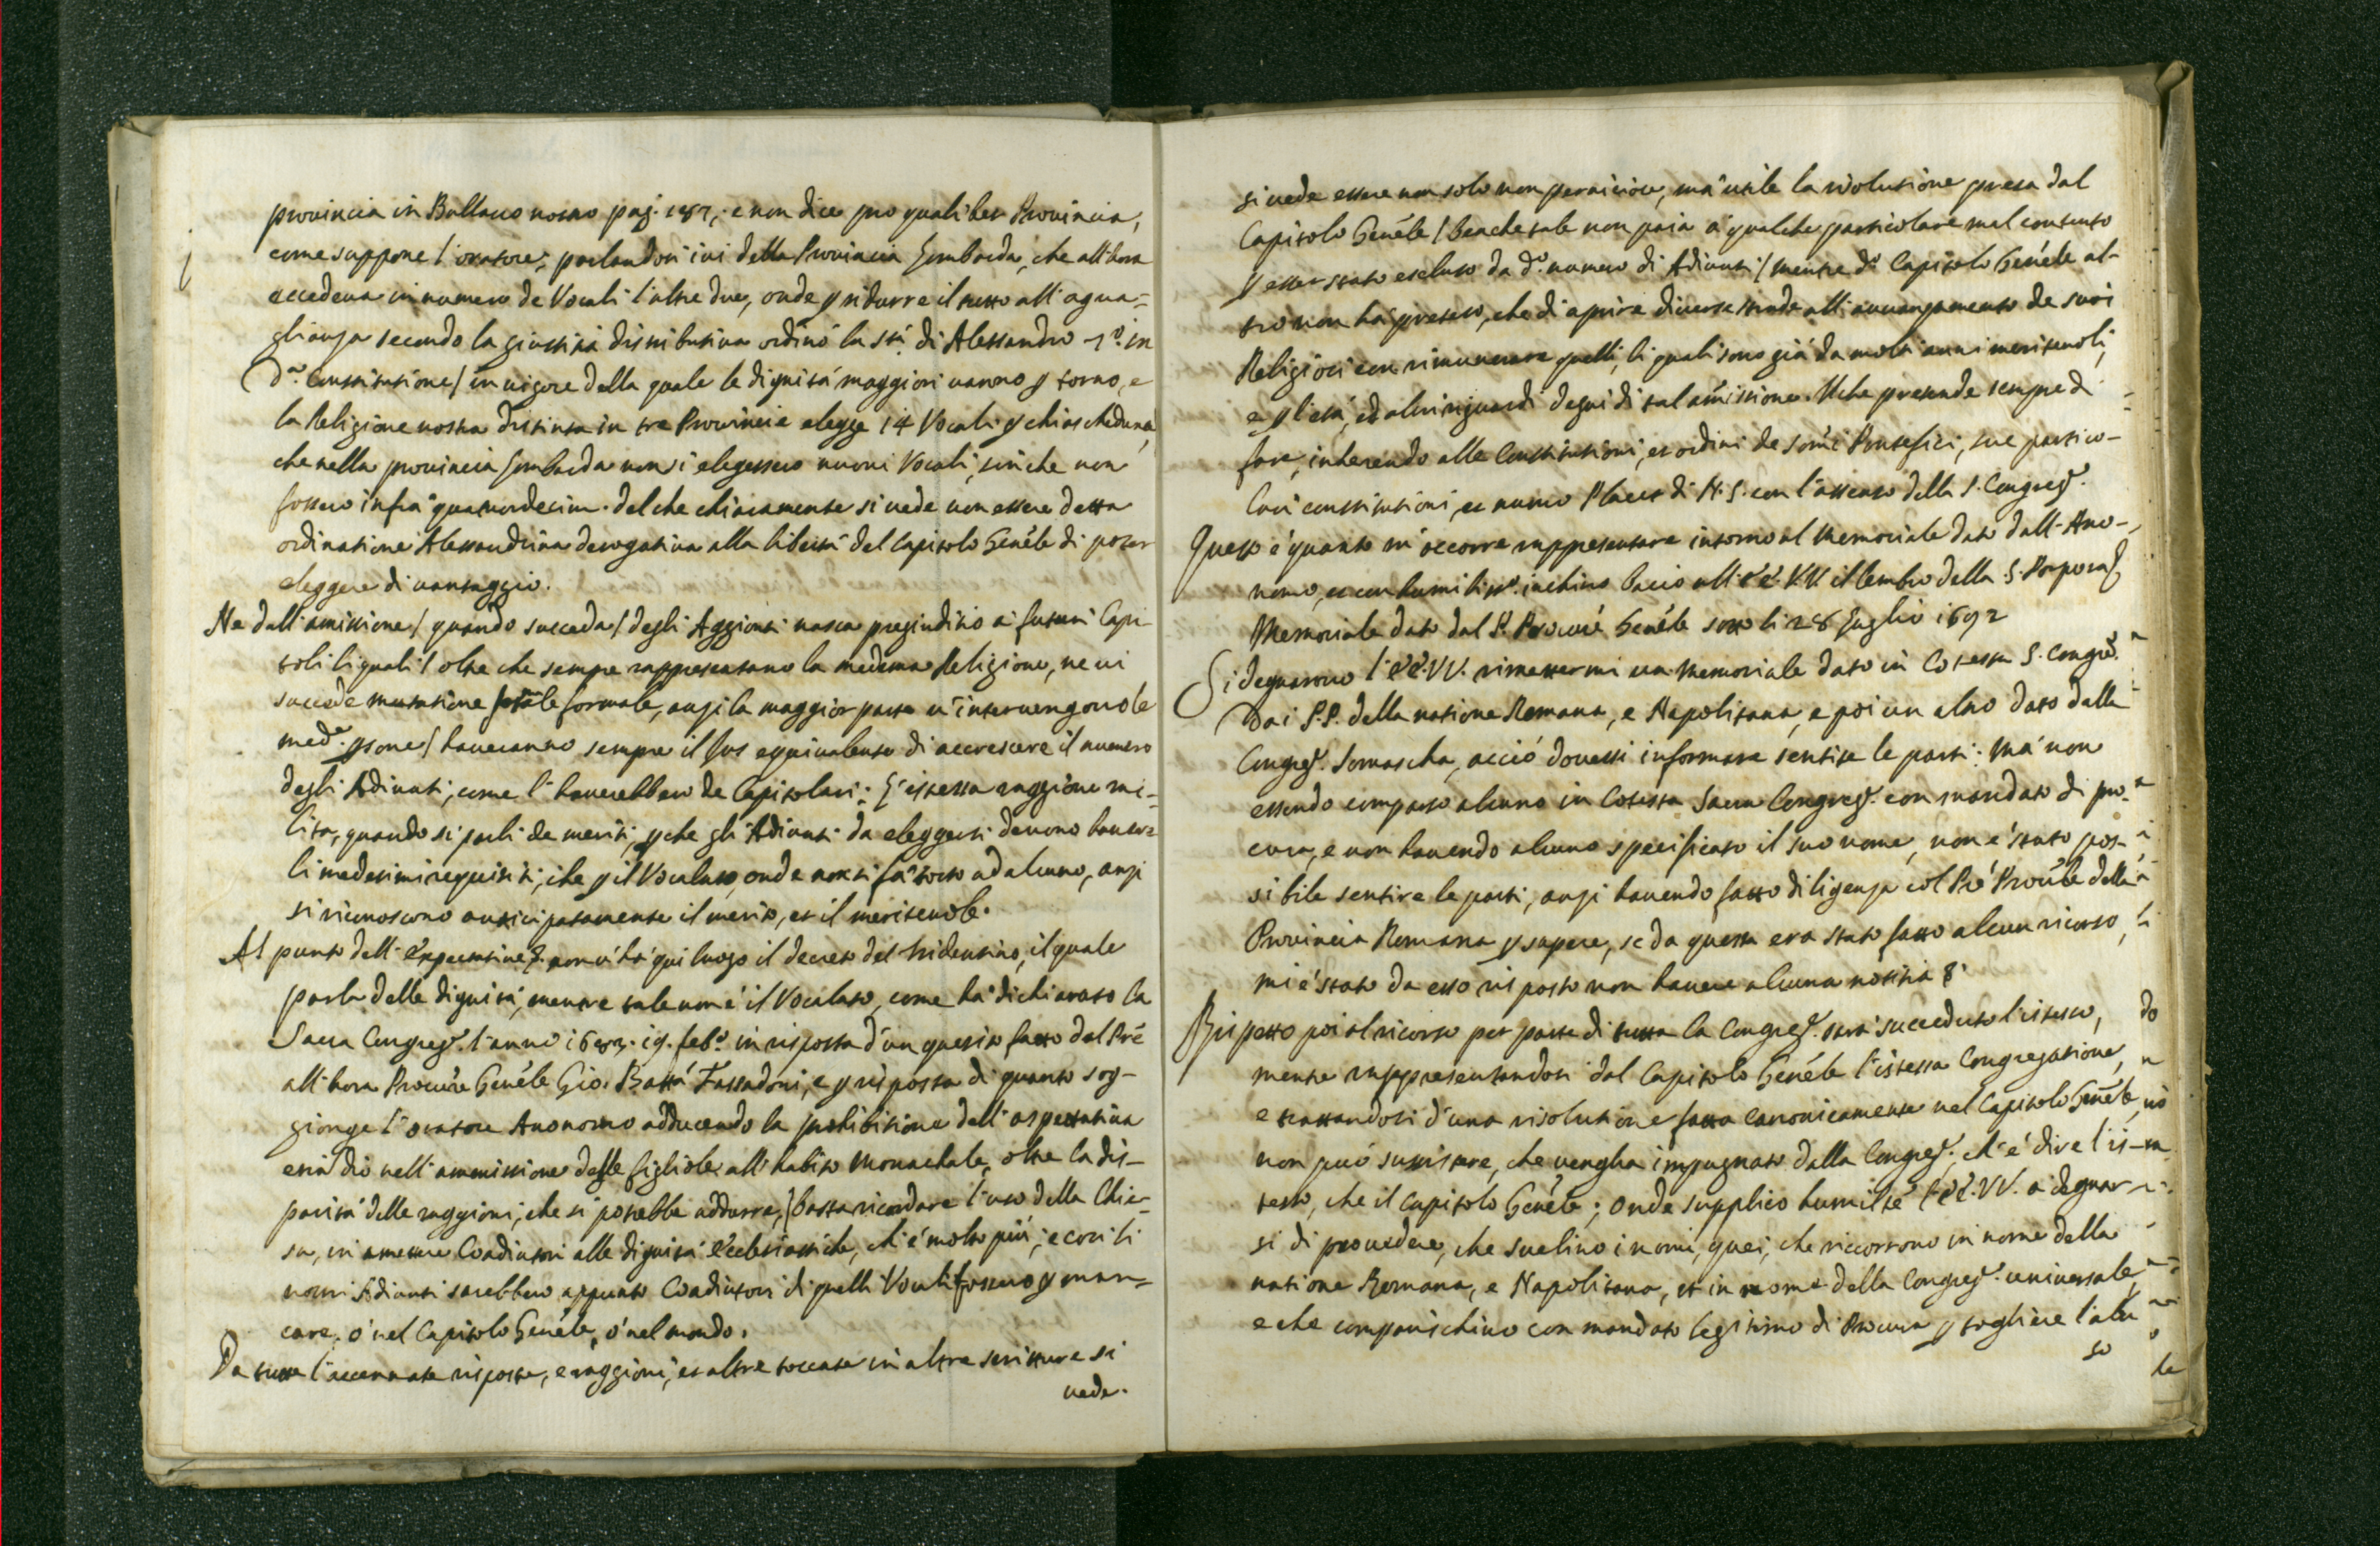 provincia in Bullario nostro pag. 187, e non dice pro qualibet Provincia,
come suppone l'oratore; parlandosi ivi della Provincia Lombarda, che all'hora
eccedeva in numero de Vocali l'altre due, onde p ridurre il tutto all'agua-
glianza secondo la giustitia distributiva ordinò la Stà di Alessandro 7º. in
dª. Constitutione / in vigore della quale le dignità maggiori vanno p torno, e
la Religione nostra distinta in tre Provincie elegge 14 Vocali p chiascheduna /
che nella provincia Lombarda non si elegessero nuovi Vocali, sinche non
fossero infra quatuordecim. del che chiaramente si vede non essere detta
ordinatione Alessandrina derogativa alla libertà del Capitolo Genéle di poter
eleggere di vantaggio.
Ne dall'amissione / quando succeda / degli Aggionti nasce pregiuditio ai futuri Capi-
toli li quali / oltre che sempre rappresentano la medema Religione, ne vi
succede mutatione totale formale, anzi la maggior parte v'intervengono le
medª. psone / haveranno sempre il Jus equivalente di accrescere il numero
degli Adiunti, come l'haverebbero de Capitolari; L'istessa raggione mi-
lita, quando si parli de meriti, pche gli Adiunti da eleggersi devono haver
li medesimi requisiti, che p il Vocalato, onde non si fà torto ad alcuno, anzi
si riconoscono anticipatamente il merito, et il meritevole.
Al punto dell'Expectative non v'hà qui luogo il decreto del Tridentino, il quale
parla delle dignità, mentre tale non è il Vocalato, come hà dichiarato la
Sacra Congreg. l'anno 1683. 19. febº. in risposta d'un quesito fatto dal Pré
all'hora Procure Genéle Gio. Battà Fassadoni, e p risposta di quanto sog-
gionge l'oratore Anonomo adducendo la prohibitione dell'aspettativa
etià dio nell'ammissione delle figliole all'habito Monachale, oltre la dis-
parità delle raggioni, che si potrebbe addurre, / basta ricordare l'uso della Chie-
sa, in amettere Coadiutori alle dignità Ecclesiastiche, ch'è molto più, e così li
nostri Adiunti sarebbero appunto Coadiutori di quelli Vocali fossero p man-
care, ò nel Capitolo Genéle, ò nel mondo.
Da tutte l'accennate risposte, e raggioni, et altre toccate in altre scritture si
vede.
si vede essere non solo non perniciosa, mà utile la risolutione presa dal
Capitolo Genéle / benche tale non paia à qualche particolare mal contento
p esser stato escluso da dº. numero di Adiunti / mentre dº. Capitolo Genéle al-
tro non hà preteso, che di aprire diverse strade all'avanzamento de suoi
Religiosi con rimunerare quelli, li quali sono già da molti anni meritevoli,
e p l'età, ed altri riguardi degni di tal amissione. Il che pretende sempre di
fare, inherendo alle Constitutioni, et ordini de Sommi Pontefici, sue partico-
lari constitutioni, et nuovo Placet di N.S. con l'assenso della S. Congreg.
Questo è quanto m'occorre rappresentare intorno al Memoriale dato dall'Ano-
nomo, et con humilissº. inchino bacio all'EE. VV. il lembo della S. Porpora
Memoriale dato dal P. Procuré Genéle sotto li 28 Luglio 1692
Si degnarono l'EE. VV. rimettermi un Memoriale dato in Cotesta S. Congreg.
Dai P.P. della natione Romana, e Napolitana, e poi un altro dato dalla
Congreg. Somascha, acciò dovessi informare sentite le parti: Mà non
essendo comparso alcuno in Cotesta Sacra Congreg. con mandato di pro-
cura, e non havendo alcuno specificato il suo nome, non è stato pos-
sibile sentire le parti, anzi havendo fatto diligenza col Pré Provle della
Provincia Romana p sapere, se da questa era stato fatto alcun ricorso,
mi è stato da esso risposto non havere alcuna notitia
Rispetto poi al ricorso per parte di tutta la Congreg. sarà succeduto l'istesso,
mentre rappresentandosi dal Capitolo Genéle l'istessa Congregatione,
e trattandosi d'una risolutione fatta canonicamente nel Capitolo Genéle,
non può sussistere, che vengha impugnato dalla Congreg., ch'è dire l'is-
tesso, che il Capitolo Genéle; Onde supplico humilte l'EE. VV. a degnar-
si di provedere, che svelino i nomi, quei, che riccorrono in nome della
natione Romana, e Napolitana, et in nome della Congreg. universale,
e che comparischino con mandato legitimo di Procura p togliere l'abu
so